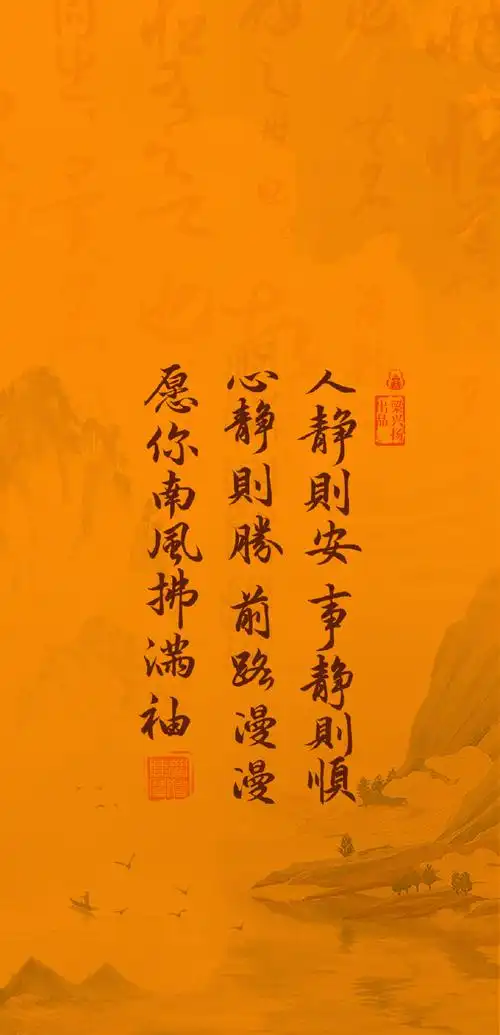 人静則安 事静則順
心静則勝 前路漫漫
愿你南風拂满袖
梁兴扬
出品